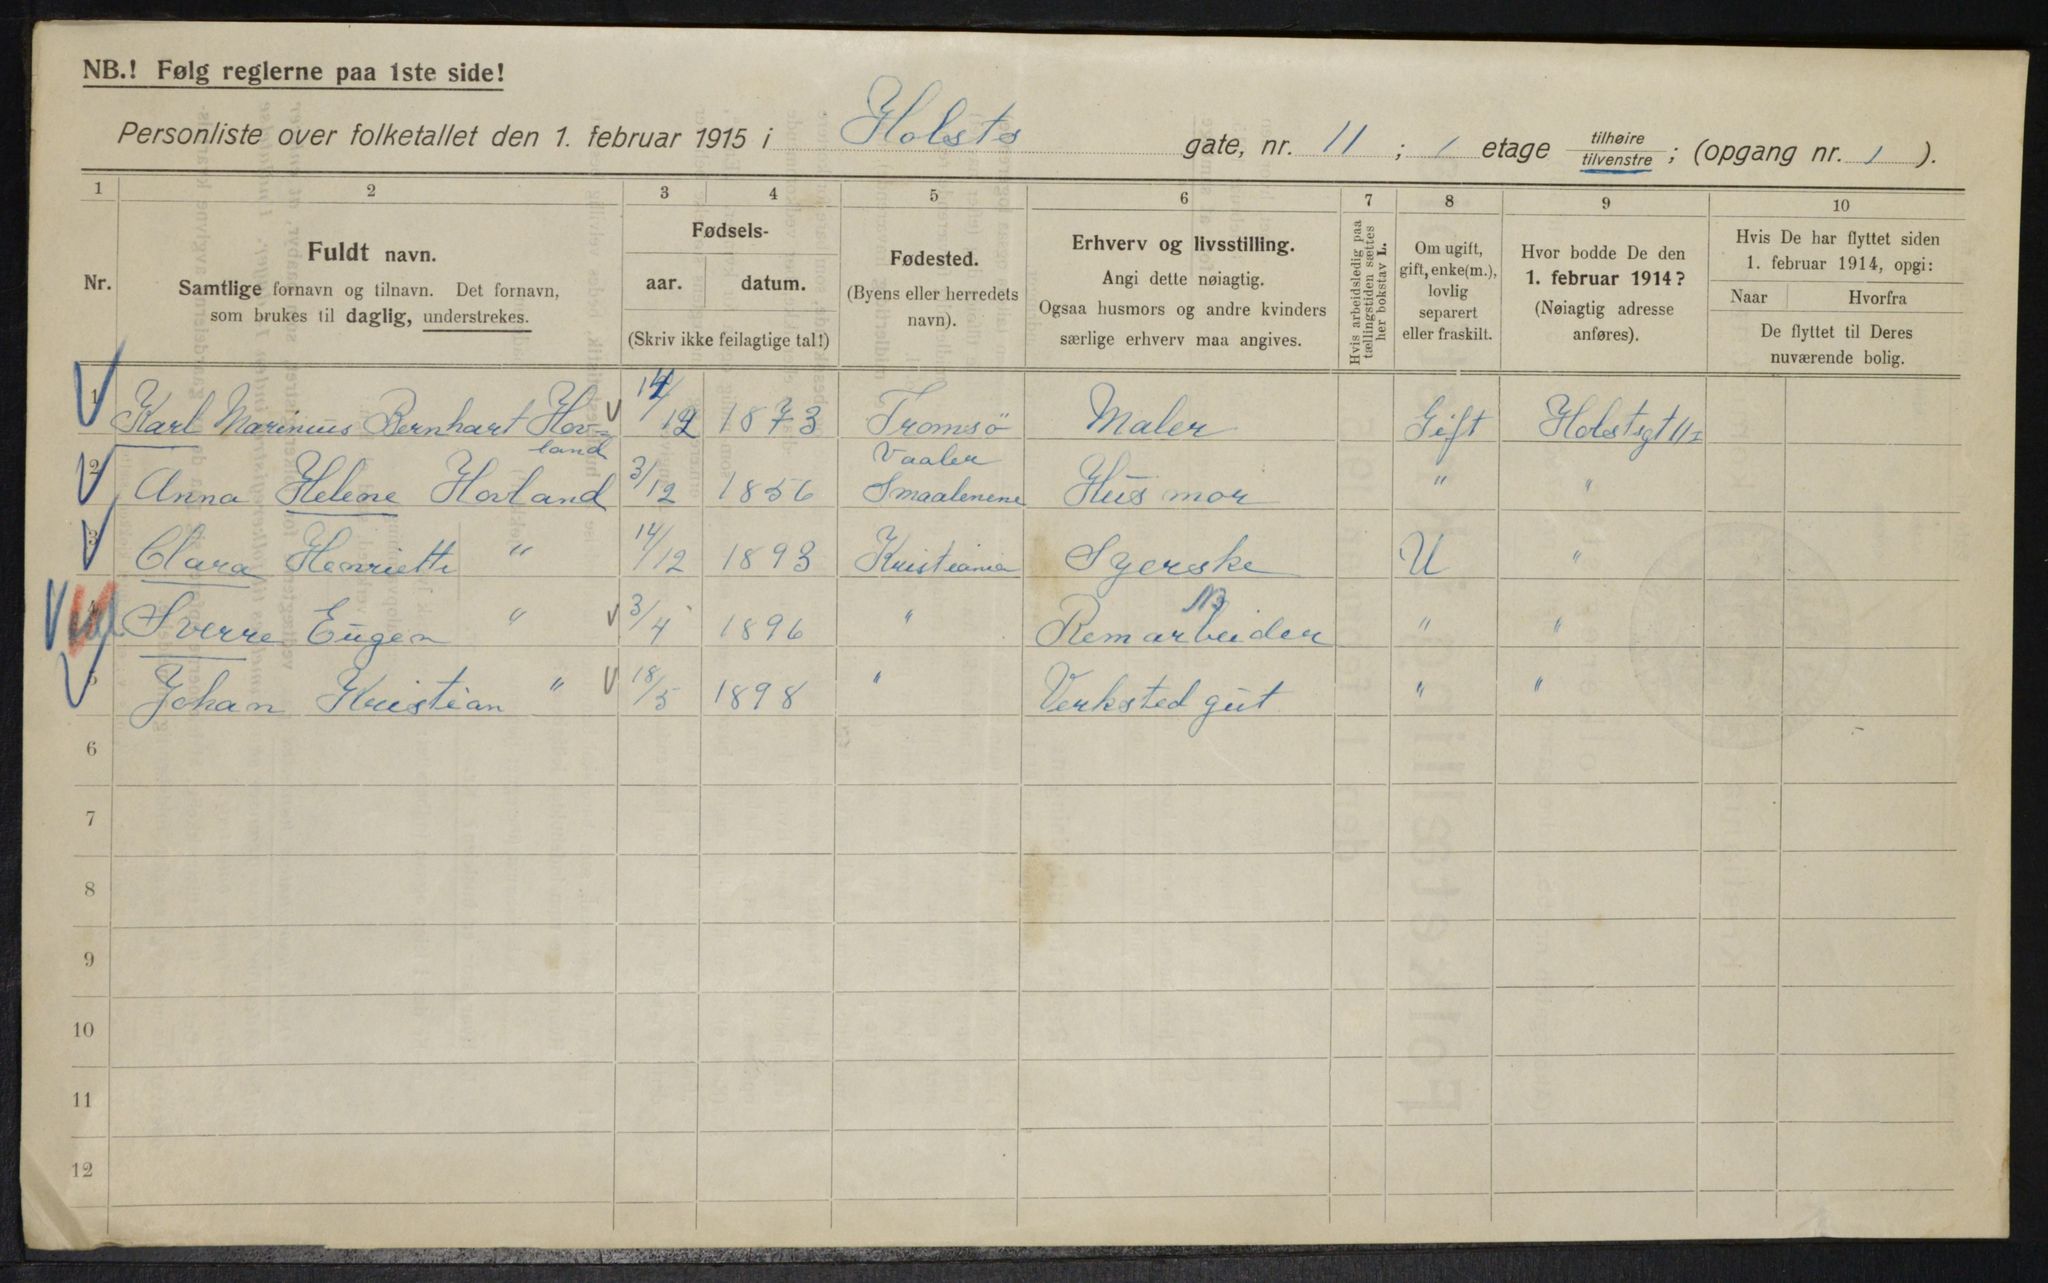 NB.! Følg reglerne paa 1ste side!
Personliste over folketallet den 1. februar 1915 i Holsts gate, nr. 11 ; 1 etage tilhøire tilvenstre ; (opgang nr. 1 ).
1 2 3 4 5 6 7 8 9 10
Nr.
Fuldt navn.
Samtlige fornavn og tilnavn. Det fornavn,
som brukes til daglig, understrekes.
Fødsels-
aar. datum.
(Skriv ikke feilagtige tal!)
Fødested.
(Byens eller herredets
navn).
Erhverv og livsstilling.
Angi dette nøiagtig.
Ogsaa husmors og andre kvinders
særlige erhverv maa angives.
Hvis arbeidsledig paa
tællingstiden sættes
her bokstav L.
Om ugift,
gift, enke(m.),
lovlig
separert
eller fraskilt.
Hvor bodde De den
1. februar 1914?
(Nøiagtig adresse
anføres).
Hvis De har flyttet siden
1. februar 1914, opgi:
Naar Hvorfra
De flyttet til Deres
nuværende bolig.
1 Karl Marinius Bernhart Hov- 14/12 1873 Tromsö Maler Gift Holstsgt 11 I
land
Vaaler
2 Anna Helene Hovland 3/12 1856 Smaalenene Hüs mor " "
3 Clara Henriette " 14/12 1893 Kristiania Syerske U "
4 Sverre Eügen " 3/4 1896 " Remarbeider " "
5 Johan Kristian " 18/5 1898 " Verksted güt " "
6
7
8
9
10
11
12